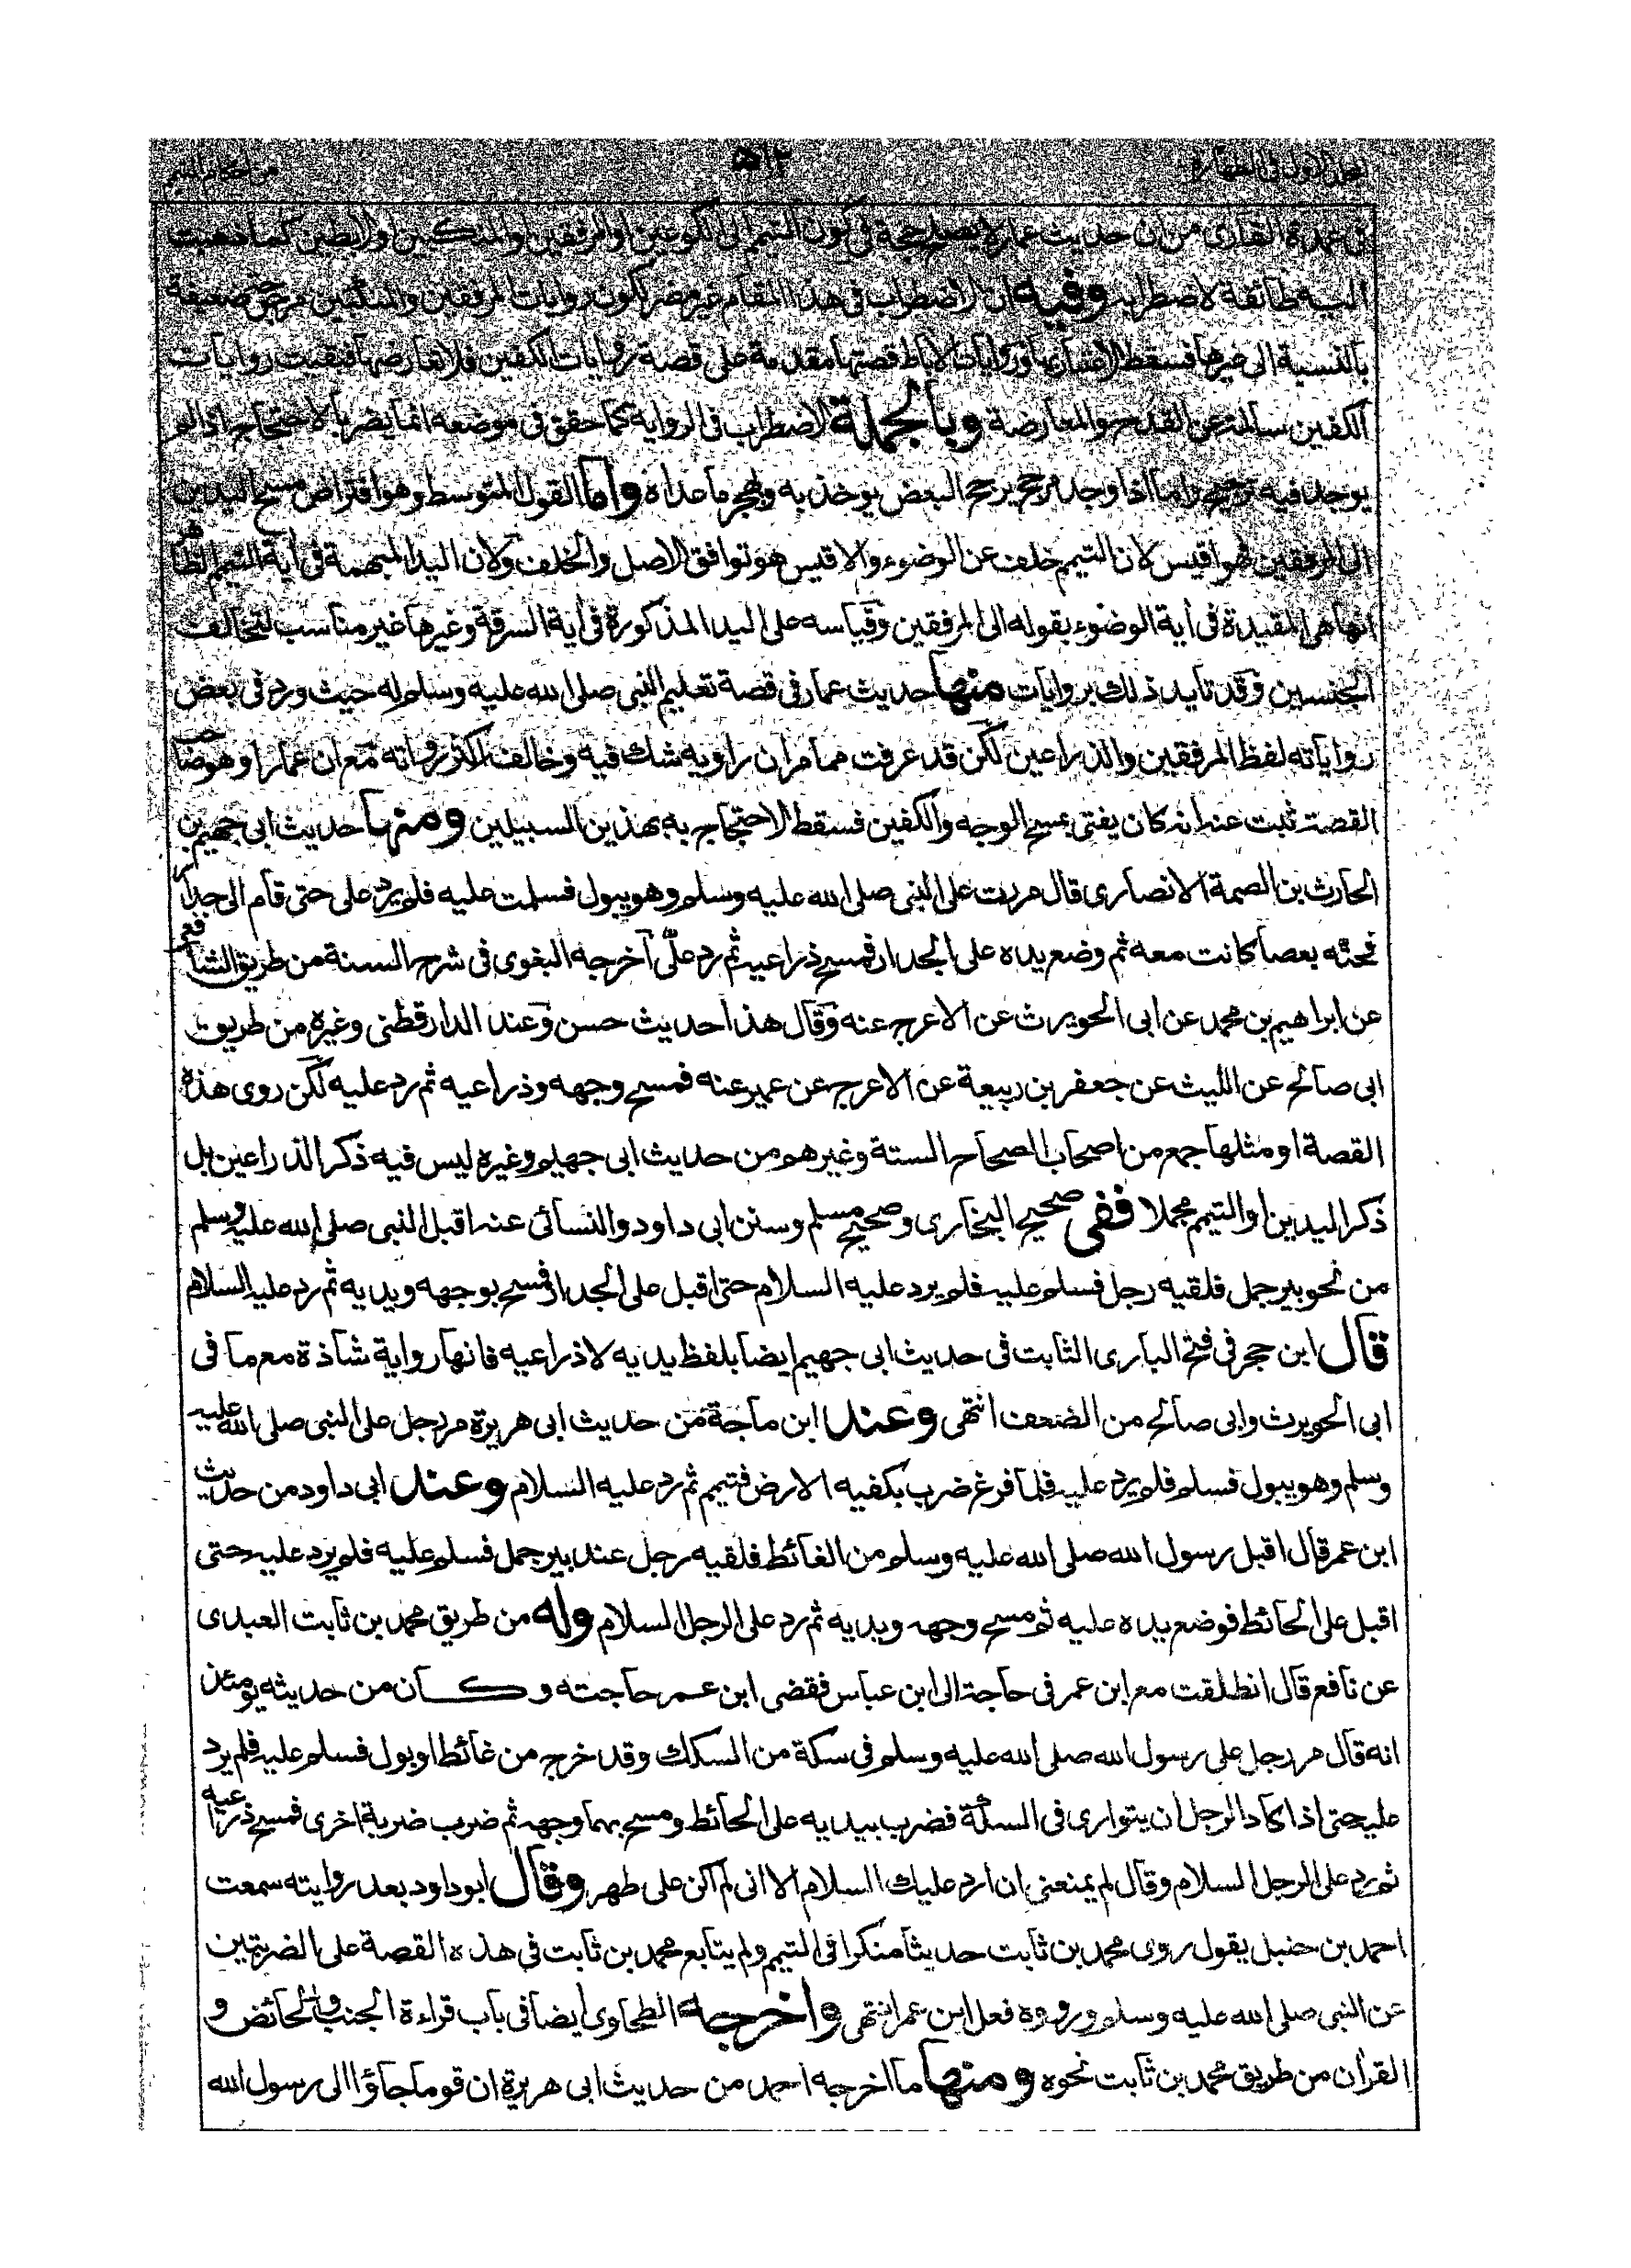 المجلد الاول فى الطهارة ٥١٢ من احكام التيمم
فى عمدة القارى من ان حديث عمار لا يصلح حجة فى كون التيمم الى الكوعين او المرفقين او المنكبين او الابطين كما ذهبت
اليه طائفة لاضطرابه وفيه ان الاضطراب فى هذا المقام غير مضر لكون روايات المرفقين والمنكبين مرجوحة ضعيفة
بالنسبة الى غيرها فسقط الاعتبار بها وروايات الآباط قصتها مقدمة على قصة روايات الكفين فلا تعارضها فبقيت روايات
الكفين سالمة عن القدح والمعارضة وبالجملة الاضطراب فى الرواية كما حقق فى موضعه انما يضر بالاحتجاج اذا لم
يوجد فيه ترجيح واما اذا وجد مرجح يرجح البعض يوخذ به ويهجر ما عداه واما القول المتوسط وهو افتراض مسح اليدين
الى المرفقين فهو اقيس لان التيمم خلف عن الوضوء والاقيس هو توافق الاصل والخلف ولان اليد المبهمة فى آية التيمم الظاهر
انها هى المقيدة فى آية الوضوء بقوله الى المرفقين وقياسه على اليد المذكورة فى آية السرقة وغيرها غير مناسب لتخالف
الجنسين وقد تايد ذلك بروايات منها حديث عمار فى قصة تعليم النبى صلى الله عليه وسلم له حيث ورد فى بعض
رواياته لفظ المرفقين والذراعين لكن قد عرفت مما مر ان راويه شك فيه وخالفه اكثر رواته مع ان عمارا وهو صاحب
القصة ثبت عنه انه كان يفتى بمسح الوجه والكفين فسقط الاحتجاج به بهذين السبيلين ومنها حديث ابى جهيم بن
الحارث بن الصمة الانصارى قال مررت على النبى صلى الله عليه وسلم وهو يبول فسلمت عليه فلم يرد على حتى قام الى جدار
فحته بعصا كانت معه ثم وضع يده على الجدار فمسح ذراعيه ثم رد علىّ آخرجه البغوى فى شرح السنة من طريق الشافعى
عن ابراهيم بن محمد عن ابى الحويرث عن الاعرج عنه وقال هذا حديث حسن وعند الدارقطنى وغيره من طريق
ابى صالح عن الليث عن جعفر بن ربيعة عن الاعرج عن عمير عنه فمسح وجهه وذراعيه ثم رد عليه لكن روى هذه
القصة او مثلها جمع من اصحاب الصحاح الستة وغيرهم من حديث ابى جهيم وغيره ليس فيه ذكر الذراعين بل
ذكر اليدين او التيمم مجملا ففى صحيح البخارى وصحيح مسلم وسنن ابى داود والنسائى عنه اقبل النبى صلى الله عليه وسلم
من نحو بير جمل فلقيه رجل فسلم عليه فلم يرد عليه السلام حتى اقبل على الجدار فمسح بوجهه ويديه ثم رد عليه السلام
قال ابن حجر فى فتح البارى الثابت فى حديث ابى جهيم ايضا بلفظ يديه لا ذراعيه فانها رواية شاذة مع ما فى
ابى الحويرث وابى صالح من الضعف انتهى وعند ابن ماجة من حديث ابى هريرة مر رجل على النبى صلى الله عليه
وسلم وهو يبول فسلم فلم يرد عليه فلما فرغ ضرب بكفيه الارض فتيمم ثم رد عليه السلام وعند ابى داود من حديث
ابن عمر قال اقبل رسول الله صلى الله عليه وسلم من الغائط فلقيه رجل عند بير جمل فسلم عليه فلم يرد عليه حتى
اقبل على الحائط فوضع يده عليه ثم مسح وجهه ويديه ثم رد على الرجل السلام وله من طريق محمد بن ثابت العبدى
عن نافع قال انطلقت مع ابن عمر فى حاجة الى ابن عباس فقضى ابن عمر حاجته وكان من حديثه يومئذ
انه قال مر رجل على رسول الله صلى الله عليه وسلم فى سكة من السكك وقد خرج من غائط او بول فسلم عليه فلم يرد
عليه حتى اذا كاد الرجل ان يتوارى فى السكة فضرب بيديه على الحائط ومسح بهما وجهه ثم ضرب ضربة اخرى فمسح ذراعيه
ثم رد على الرجل السلام وقال لم يمنعنى ان ارد عليك السلام الا انى لم اكن على طهر وقال ابو داود بعد روايته سمعت
احمد بن حنبل يقول روى محمد بن ثابت حديثا منكرا فى التيمم ولم يتابع محمد بن ثابت فى هذه القصة على الضربتين
عن النبى صلى الله عليه وسلم ورووه فعل ابن عمر انتهى واخرجه الطحاوى ايضا فى باب قراءة الجنب والحائض و
القرآن من طريق محمد بن ثابت نحوه ومنها ما اخرجه احمد من حديث ابى هريرة ان قوما جاؤا الى رسول الله